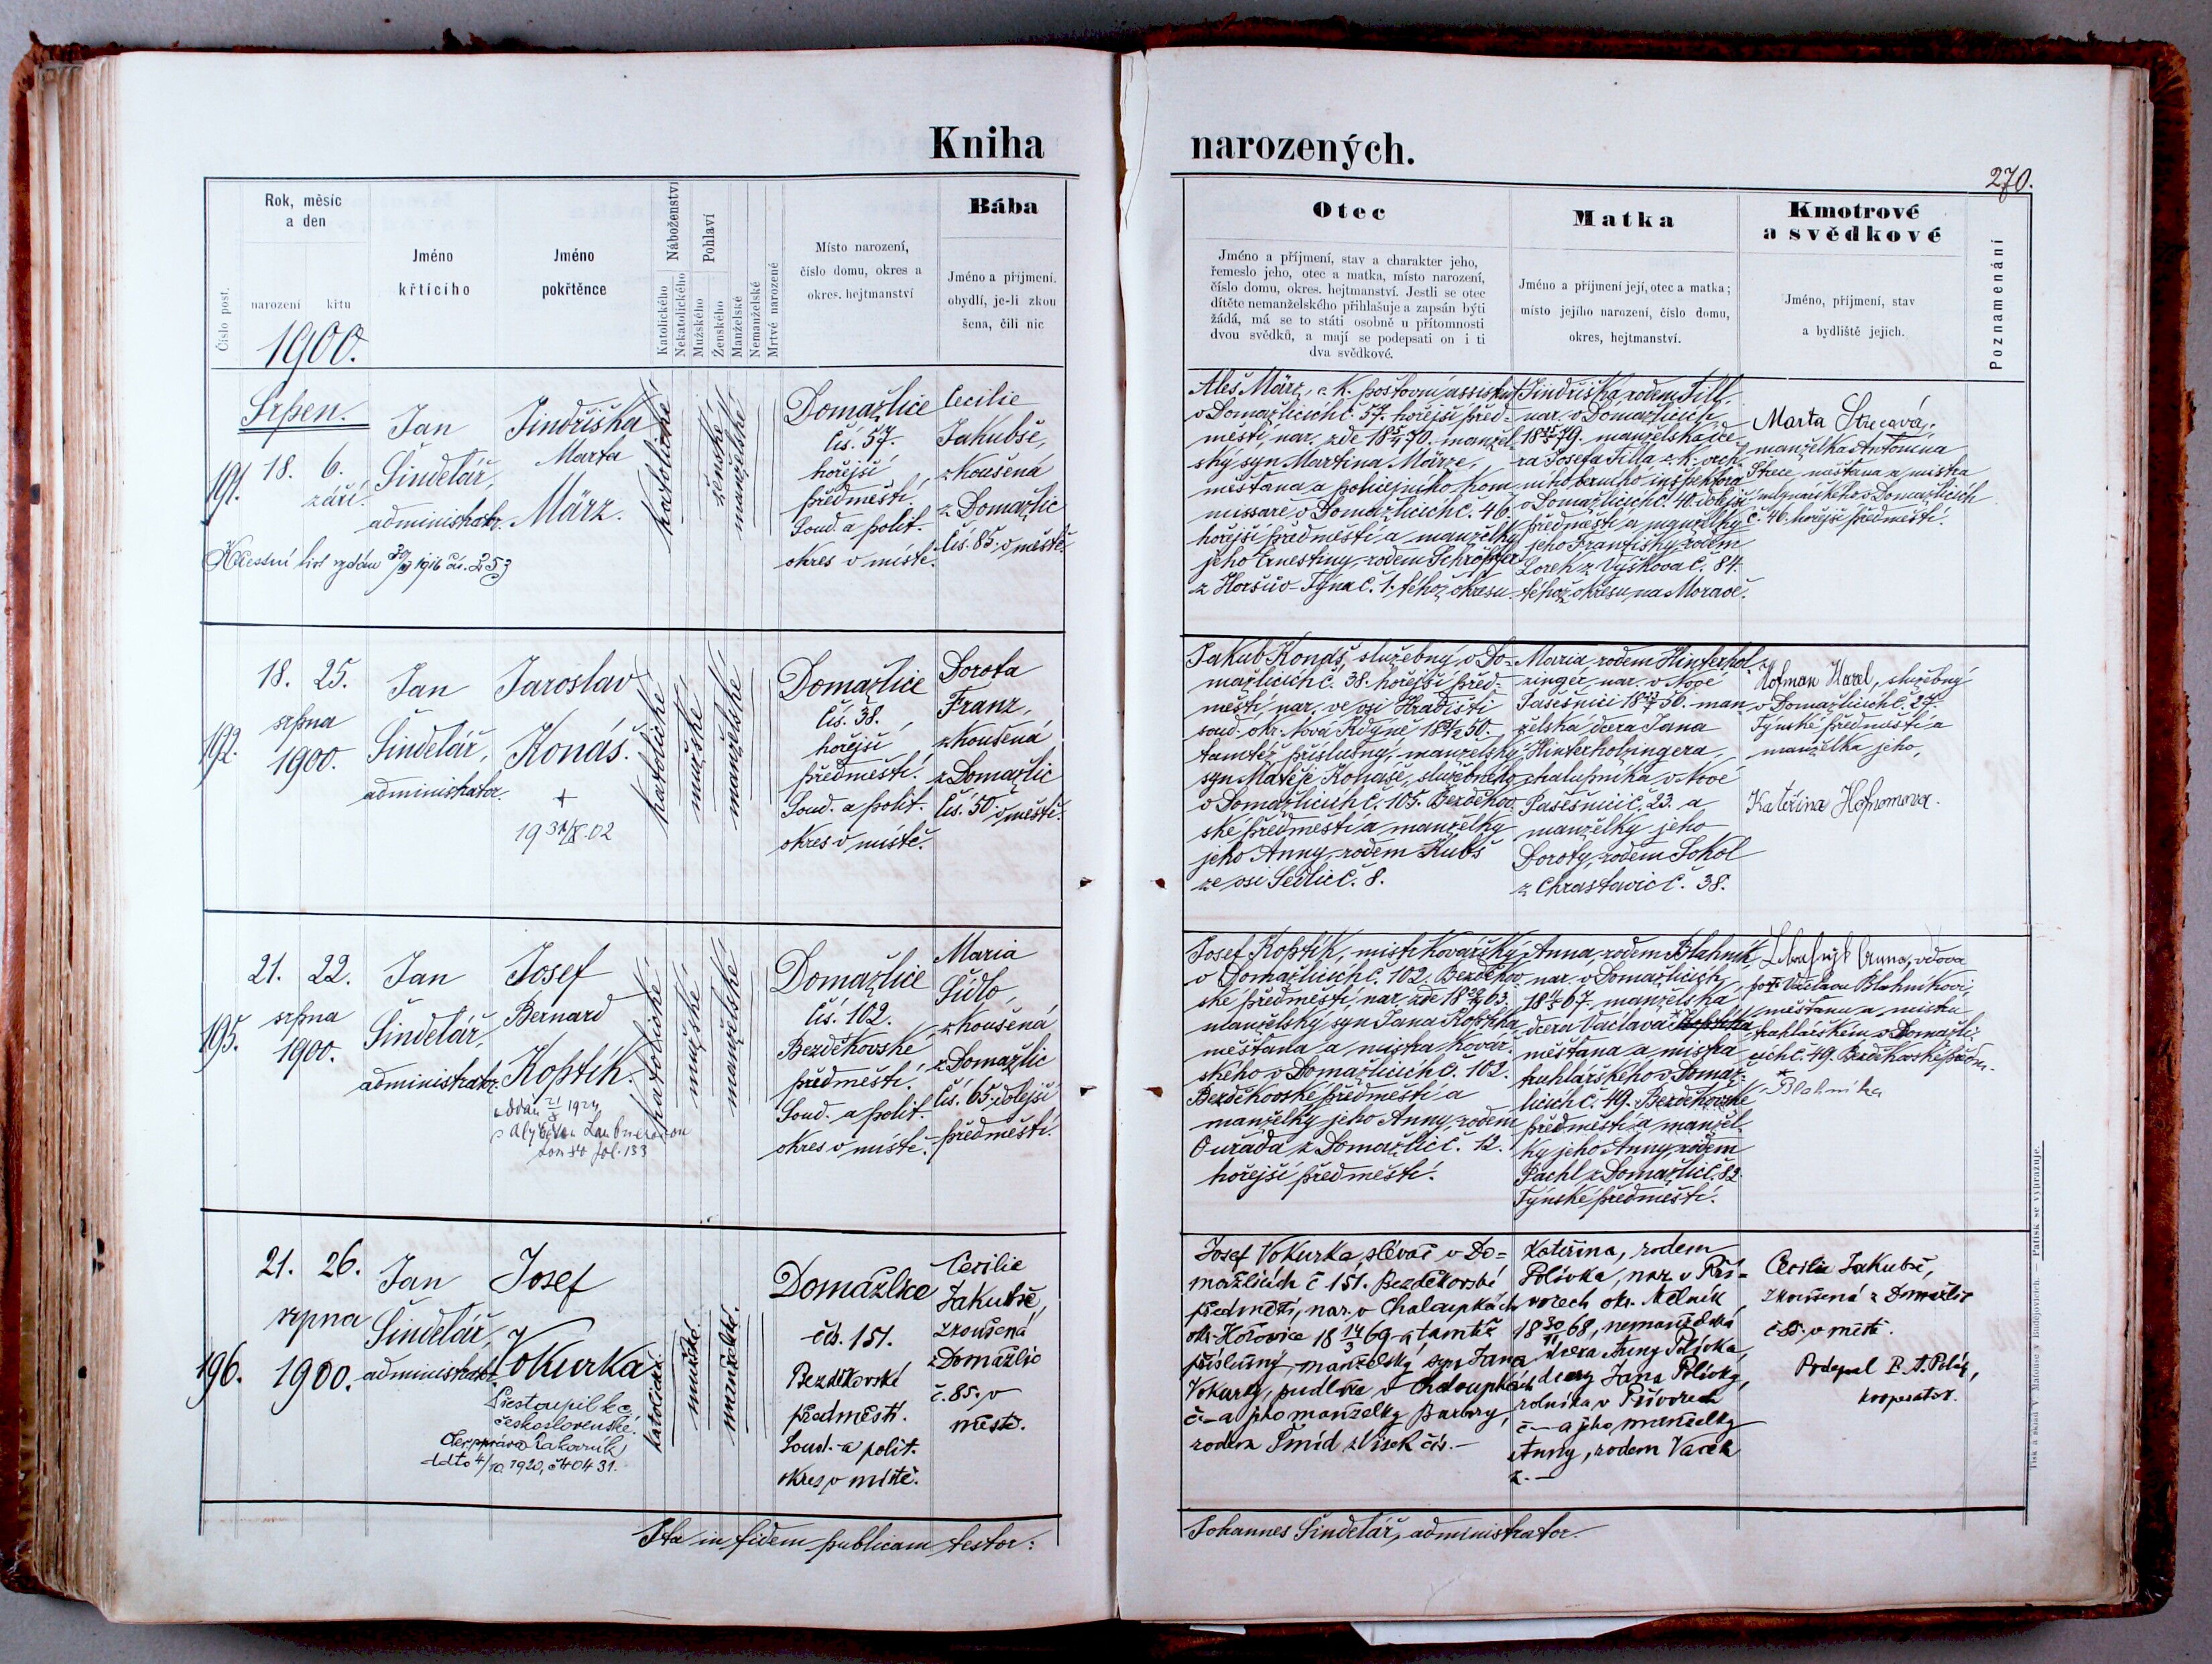 Kniha narozených.
270.
Rok, měsíc
a den
narození křtu
1900.
Číslo post.
Jméno
křtícího
Jméno
pokřtěnce
Náboženství
Katolického
Nekatolického
Pohlaví
Mužského
Ženského
Manželské
Nemanželské
Mrtvě narozené
Místo narození,
číslo domu, okres a
okres. hejtmanství
Bába
Jméno a příjmení.
obydlí, je-li zkou
šena, čili nic
Otec
Jméno a příjmení, stav a charakter jeho,
řemeslo jeho, otec a matka, místo narození,
číslo domu, okres. hejtmanství. Jestli se otec
dítěte nemanželského přihlašuje a zapsán býti
žádá, má se to státi osobně u přítomnosti
dvou svědků, a mají se podepsati on i ti
dva svědkové.
Matka
Jméno a příjmení její, otec a matka;
místo jejího narození, číslo domu,
okres, hejtmanství.
Kmotrové
a svědkové
Jméno, příjmení, stav
a bydliště jejich.
Poznamenání
Srpen.
191.
18. 6.
září
Jan
Šindelář,
administrator.
Jindřiška
Marta
März.
Křestní list vydán 1916 čís. 253
katolické
ženské
manželské
Domažlice
čís. 57.
hořejší
předměstí.
Soud. a polit.
okres v místě.
Cecilie
Jakubše,
zkoušená
z Domažlic
čís. 85. v městě.
Aleš März, c. k. poštovní assistent
v Domažlicích č. 57. hořejší před-
městí, nar. zde 18 5/4 70. manžel-
ský syn Martina Märze,
měštana a policejního kom-
missaře v Domažlicích č. 46.
hořejší předměstí a manželky
jeho Ernestiny, rodem Schröpfer
z Horšův-Týna č. 1. téhož okresu.
Jindřiška, rodem Till,
nar. v Domažlicích
79. manželská dce-
ra Josefa Tilla c. k. vrch-
ního berního inspektora
v Domažlicích č. 40. dolejší
předměstí a manželky
jeho Františky, rodem
Loreh z Vyškova č. 84.
téhož okresu na Moravě.
Marta Strecová,
manželka Antonína
Strece, měštana a mistra
mlynářského v Domažlicích
č. 46. hořejší předměstí.
192.
18. 25.
srpna
1900.
Jan
Šindelář,
administrator.
Jaroslav
Konáš.
+
19 31/X 02
katolické
mužské
manželské
Domažlice
čís. 38.
hořejší
předměstí.
Soud. a polit.
okres v místě.
Dorota
Franz,
zkoušená
z Domažlic
čís. 50. v městě.
Jakub Konáš, služebný v Do-
mažlicích č. 38. hořejší před-
městí, nar. ve vsi Hradišti
soud. okr. Nová Kdýně 50.
tamtéž příslušný, manželský
syn Matěje Konáše, služebného
v Domažlicích č. 105. Bezděkov-
ské předměstí a manželky
jeho Anny, rodem Kubš
ze vsi Sedlic č. 8.
Maria rodem Hinterhol-
zinger, nar. v Nové
Pasečnici 50. man-
želská dcera Jana
Hinterholzingera,
chalupníka v Nové
Pasečnici č. 23. a
manželky jeho
Doroty, rodem Sokol
z Chrastavic č. 38.
Hofman Karel, služebný
v Domažlicích č. 27.
Týnské předměstí a
manželka jeho,
Kateřina Hofmanova.
195.
21. 22.
srpna
1900.
Jan
Šindelář,
administrator.
Josef
Bernard
Koptík.
oddán 1924
tom fol. 133
katolické
mužské
manželské
Domažlice
čís. 102.
Bezděkovské
předměstí.
Soud. a polit.
okres v místě.
Maria
Šídlo,
zkoušená
z Domažlic
čís. 65. dolejší
předměstí.
Josef Koptík, mistr kovářský
v Domažlicích č. 102. Bezděkov-
ské předměstí, nar. zde 63.
manželský syn Jana Koptíka
měštana a mistra kovář-
ského v Domažlicích č. 102.
Bezděkovské předměstí a
manželky jeho Anny, rodem
Ouřada z Domažlic č. 12.
hořejší předměstí.
Anna, rodem Blahník,
nar. v Domažlicích,
67. manželská
dcera Václava * Koptíka
měštana a mistra
truhlářského v Domaž-
licích č. 49. Bezděkovské
předměstí a manžel-
ky jeho Anny, rodem
Pachl z Domažlic č. 82.
Týnské předměstí.
Anna, vdova
po † Václavu Blahníkovi,
měštanu a mistru
truhlářském v Domažli-
cích č. 49. Bezděkovské předm.
* Blahníka
196.
21. 26.
srpna
1900.
Jan
Šindelář
administrator.
Josef
Vokurka
Přestoupil k c.
československé.
Rakovník
ddto 4/10. 1920, č. 40431.
katolické.
mužské.
manželské.
Domažlice
čís. 151.
Bezděkovské
předměstí.
Soud. a polit.
okres v místě.
Cecilie
Jakubše,
zkoušená
z Domažlic
č. 85. v
městě.
Josef Vokurka, slévač v Do-
mažlicích č 151. Bezděkovské
předměstí, nar. v Chaloupkách
okr. Hořovice 18 14/3 69 a tamtéž
příslušný, manželský syn Jana
Vokurky, pudléře v Chaloupkách
č - a jeho manželky Barbory,
rodem Šmíd z Vísek čís. -
Kateřina, rodem
Polívka, nar. v Pří-
vorech okr. Mělník
18 30/11 68, nemanželská
dcera Anny Polívka,
dcery Jana Polívky,
rolníka v Přívorech
č - a jeho manželky
Anny, rodem Vacek
z. -
Cecilie Jakubše,
zkoušená z Domažlic
č 85. v městě.
Podepsal P. A. Polák,
kooperator.
Ita in fidem publicam testor:
Johannes Šindelář, administrator.